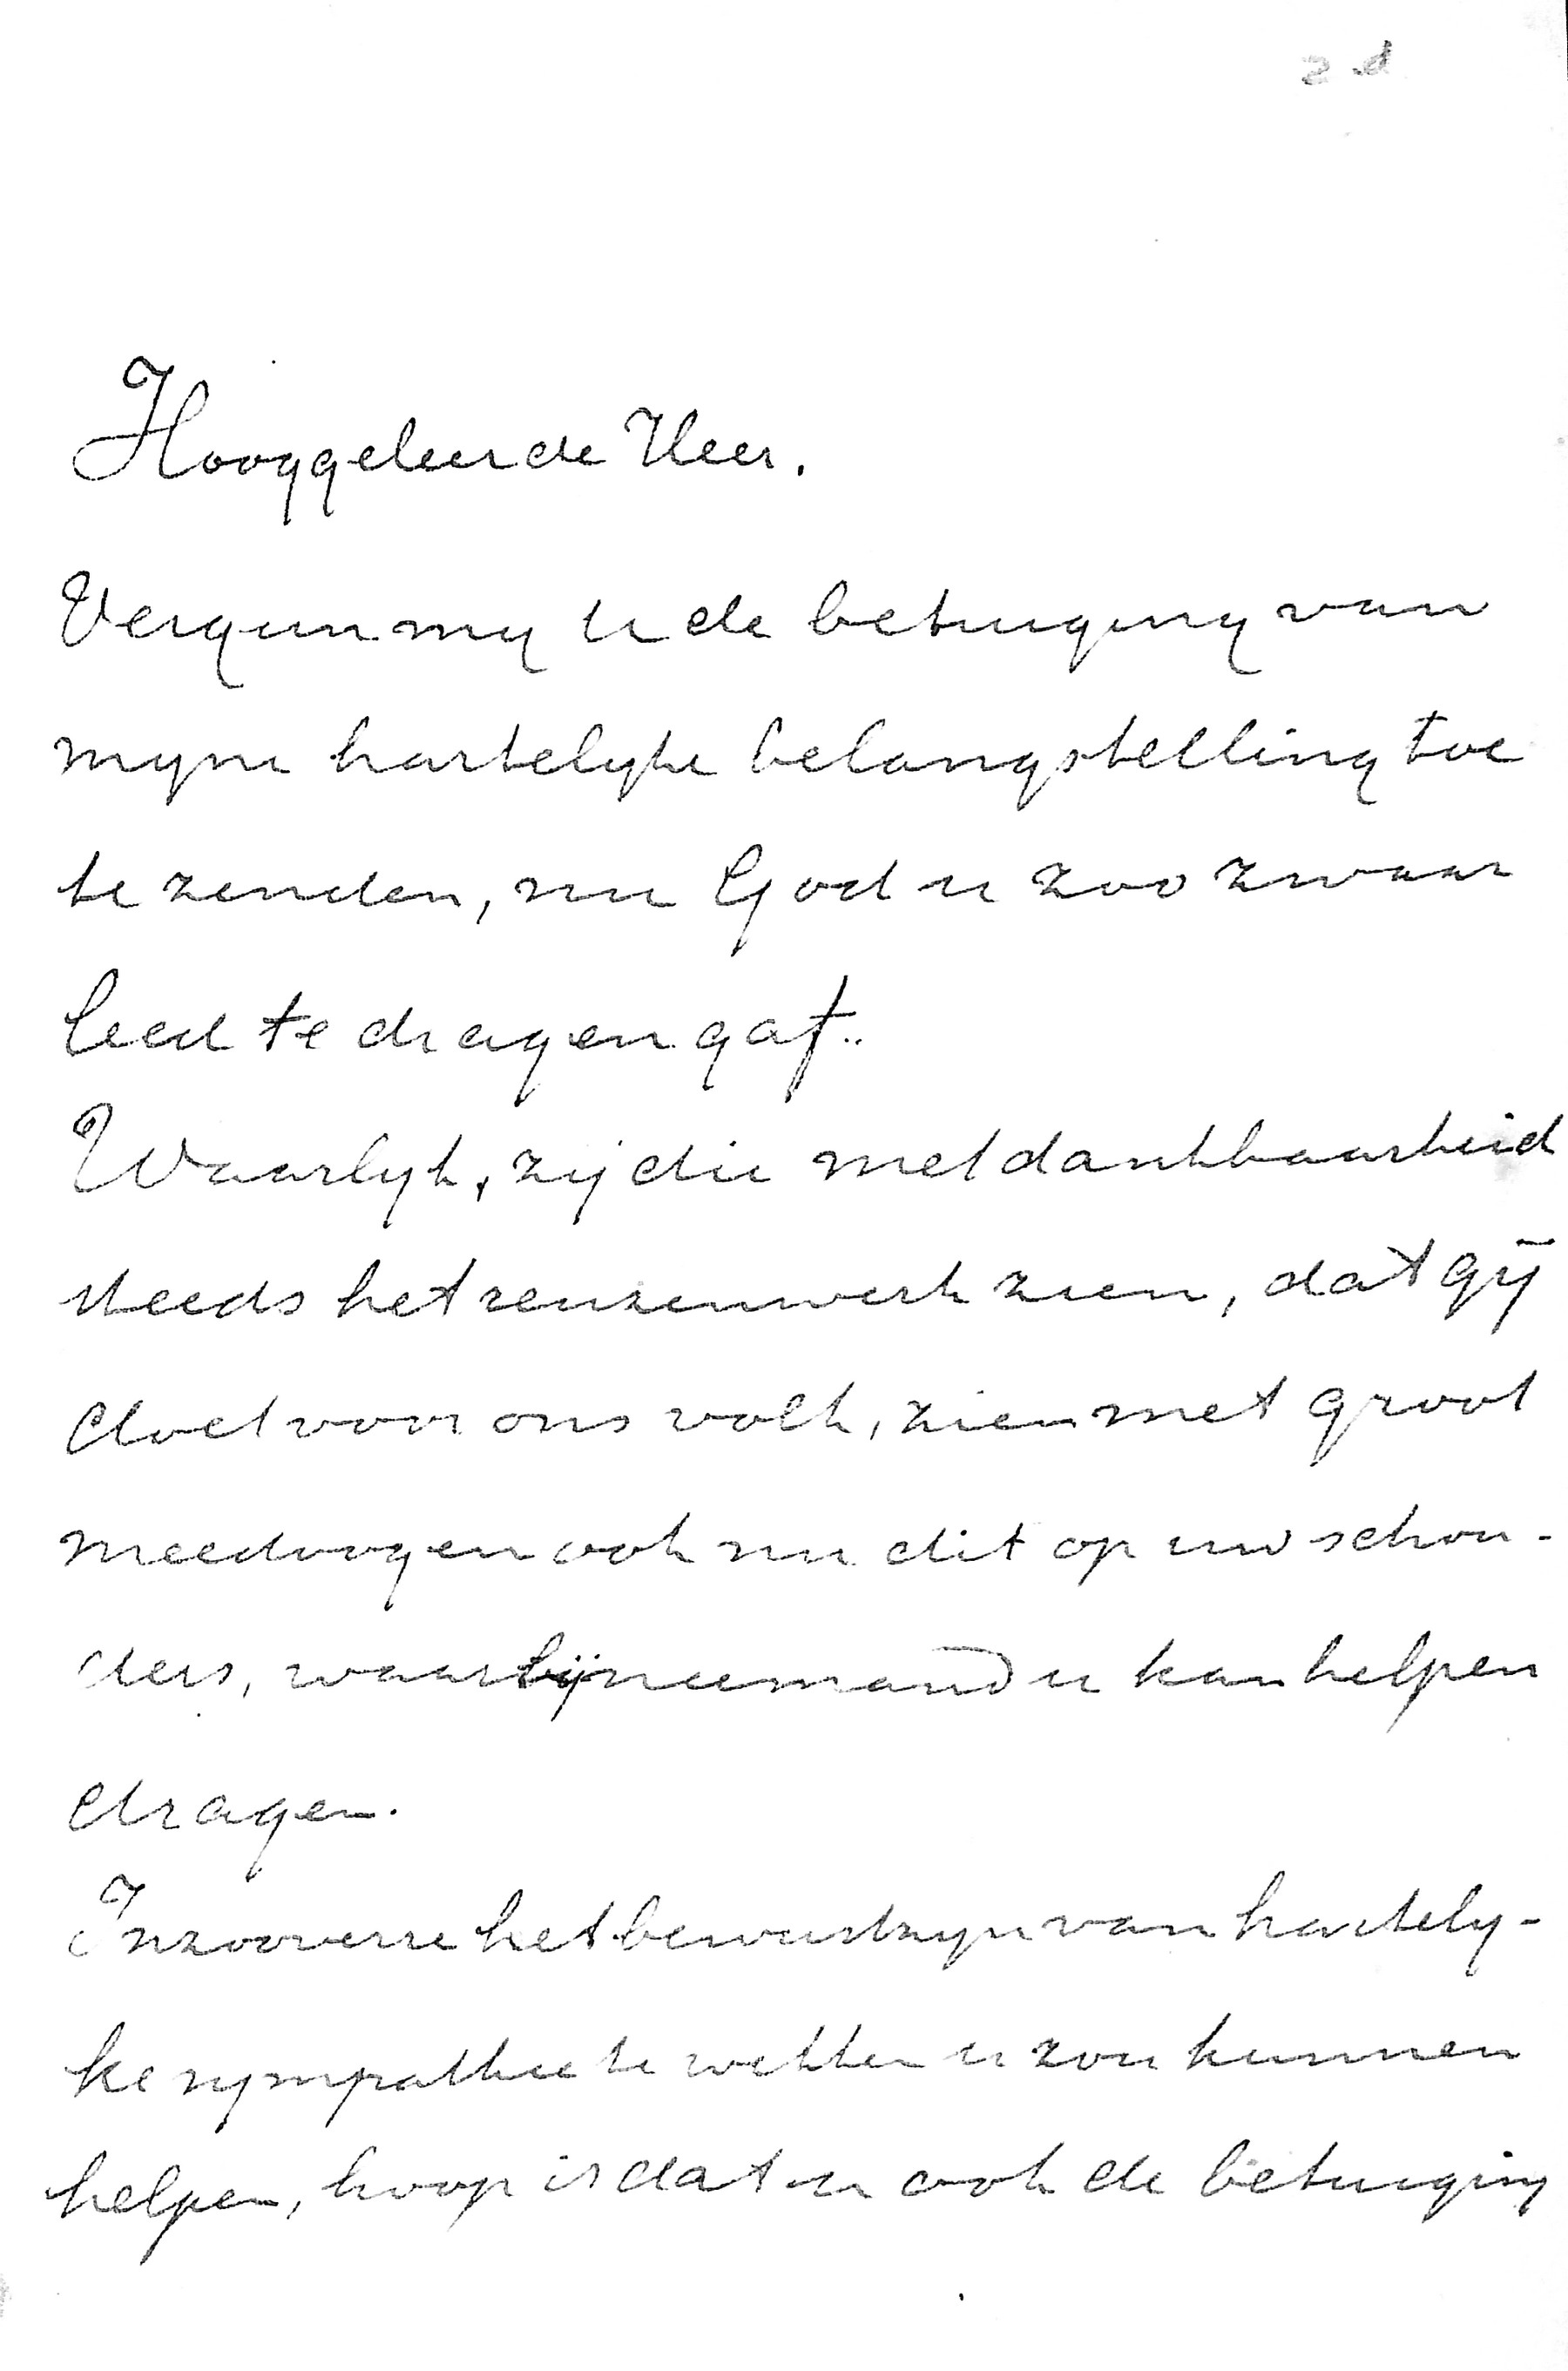 z d
Hooggeleerde Heer.
Vergun my U de betuiging van
myne hartelyke belangstelling toe
te zenden, nu God u zoo zwaar
leed te dragen gaf..
Waarlyk, zij die met dankbaarheid
steeds het reuzenwerk zien, dat gij
doet voor ons volk, zien met groot
meedoogen ook nu dit op uw schou-
ders, waarbij niemand u kan helpen
dragen.
Inzooverre het bewustzyn van hartely-
ke sympathie te wekken u zou kunnen
helpen, hoop ik dat u ook de betuiging